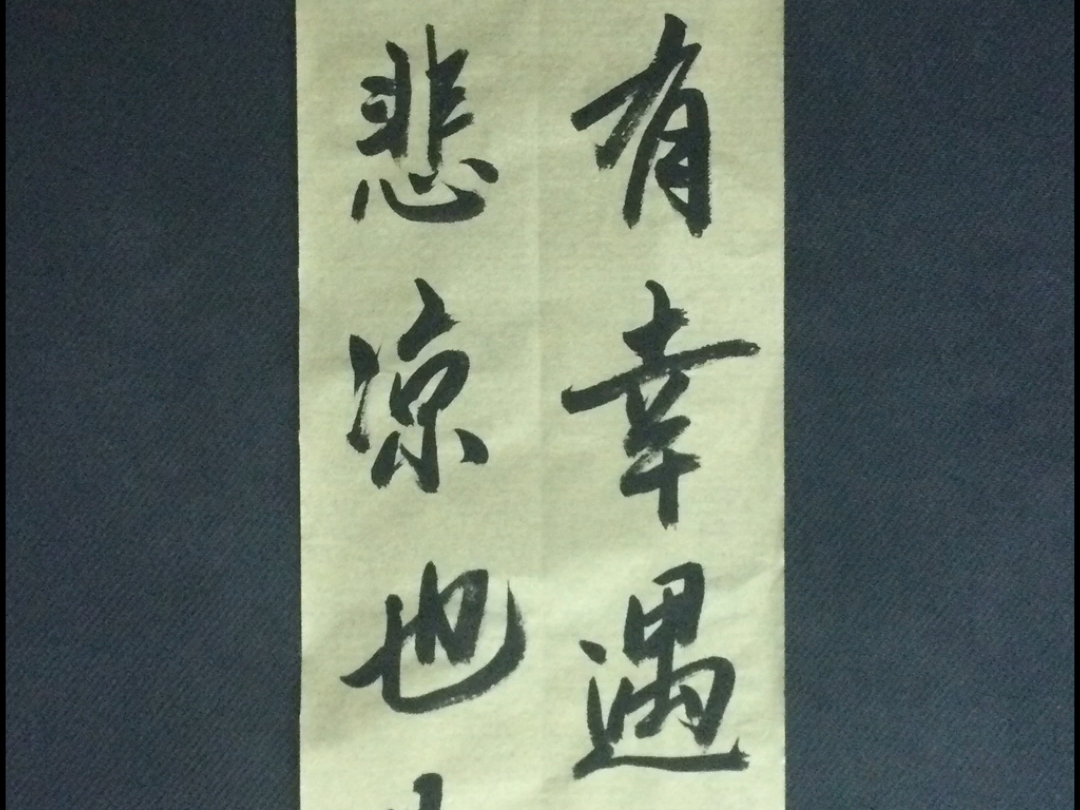 有幸遇
悲凉也